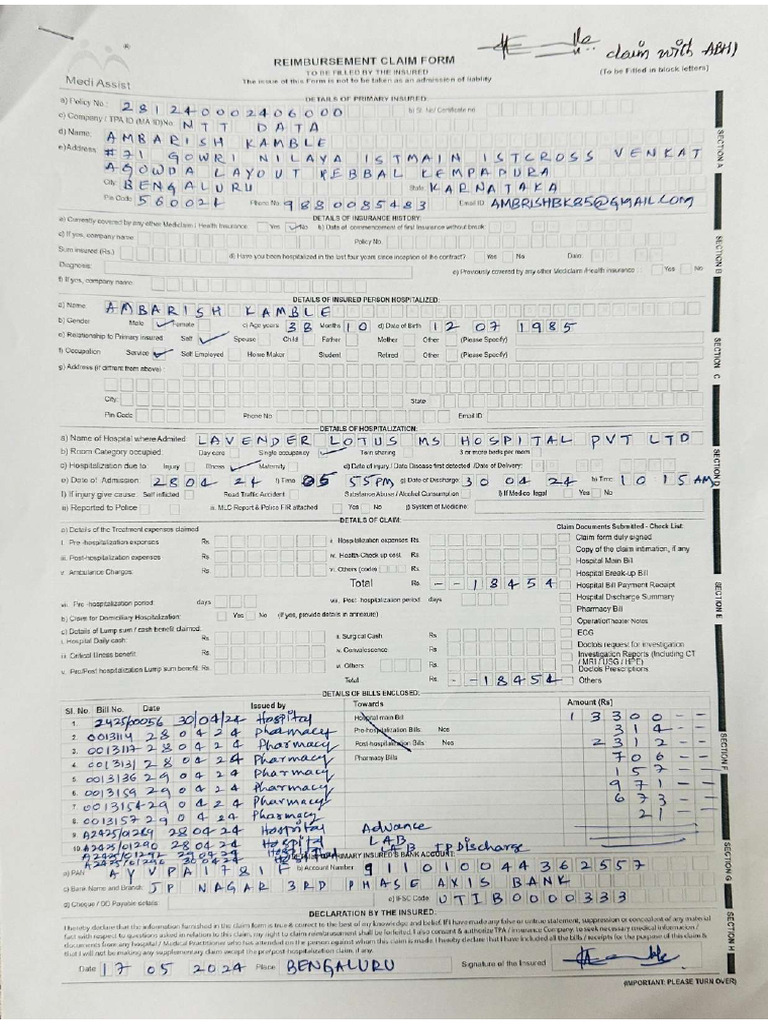 claim with ABHI
REIMBURSEMENT CLAIM FORM
TO BE FILLED BY THE INSURED
(To be Filled in block letters)
Medi Assist
The issue of this Form is not to be taken as an admission of liability
DETAILS OF PRIMARY INSURED:
a) Policy No.: 281240002406000 b) Sl. No/ Certificate no.
c) Company / TPA ID (MA ID)No. NTT DATA
d) Name: AMBARISH KAMBLE
e)Address #71 GOWRI NILAYA ISTMAIN ISTCROSS VENKAT
AGOWDA LAYOUT HEBBAL KEMPAPURA
City BENGALURU State KARNATAKA
Pin Code 560024 Phone No. 9880085483 Email ID AMBRISHBK85@GMAIL.COM
SECTION A
DETAILS OF INSURANCE HISTORY:
a) Currently covered by any other Mediclaim / Health Insurance Yes No b) Date of commencement of first Insurance without break:
c) If yes, company name Policy No
Sum insured (Rs.) d) Have you been hospitalized in the last four years since inception of the contract? Yes No Date:
Diagnosis: e) Previously covered by any other Mediclaim /Health insurance : Yes No
f) If yes, company name:
SECTION B
DETAILS OF INSURED PERSON HOSPITALIZED:
a) Name: AMBARISH KAMBLE
b) Gender Male Female c) Age years 38 Months 10 d) Date of Birth 12 07 1985
e) Relationship to Primary insured Self Spouse Child Father Mother Other (Please Specify)
f) Occupation Service Self Employed Home Maker Student Retired Other (Please Specify)
g) Address (if diffrent from above) :
City: State
Pin Code Phone No Email ID
SECTION C
DETAILS OF HOSPITALIZATION:
a) Name of Hospital where Admited LAVENDER LOTUS MS HOSPITAL PVT LTD
b) Room Category occupied: Day care Single occupancy Twin sharing 3 or more beds per room
c) Hospitalization due to Injury Illness Maternity d) Date of injury / Date Disease first detected /Date of Delivery:
e) Date of Admission 28 04 24 f) Time 05 55PM g) Date of Discharge: 30 04 24 h) Time: 10 15AM
i) If injury give cause: Self inflicted Road Traffic Accident Substance Abuse / Alcohol Consumption i) If Medico legal Yes No
ii) Reported to Police iii. MLC Report & Police FIR attached Yes No j) System of Medicine:
SECTION D
DETAILS OF CLAIM:
a) Details of the Treatment expenses claimed Claim Documents Submitted - Check List:
i. Pre -hospitalization expenses Rs. ii. Hospitalization expenses Rs. Claim form duly signed
Copy of the claim intimation, if any
iii. Post-hospitalization expenses Rs. iv. Health-Check up cost Rs. Hospital Main Bill
v. Ambulance Charges: Rs. vi. Others (code) Rs. Hospital Break-up Bill
Total Rs. - - 18454 Hospital Bill Payment Receipt
Hospital Discharge Summary
vii. Pre -hospitalization period: days viii. Post- hospitalization period days Pharmacy Bill
b) Claim for Domiciliary Hospitalization: Yes No (If yes, provide details in annexure) Operation Theater Notes
c) Details of Lump sum / cash benefit claimed: ECG
i. Hospital Daily cash: Rs. ii. Surgical Cash Rs. Doctors request for investigation
iii. Critical Illness benefit Rs. iv. Convalescence Rs. Investigation Reports (Including CT / MRI / USG / HPE)
v. Pre/Post hospitalization Lump sum benefit: Rs. vi. Others Rs. Doctors Prescriptions
Total Rs. - - 18454 Others
SECTION E
DETAILS OF BILLS ENCLOSED:
Sl. No. Bill No. Date Issued by Towards Amount (Rs)
1. 2425/00056 30/04/24 Hospital Hospital main Bill 13300 - -
2. 0013114 280424 Pharmacy Pre-hospitalization Bills: Nos 314 - -
3. 0013117 280424 Pharmacy Post-hospitalization Bills: Nos 2312 - -
4. 0013131 280424 Pharmacy Pharmacy Bills 706 - -
5. 0013136 290424 Pharmacy 157 - -
6. 0013159 290424 Pharmacy 971 - -
7. 0013154 290424 Pharmacy 673 - -
8. 0013157 290424 Pharmacy 21 - -
9. A2425/01289 280424 Hospital Advance
10. A2425/01290 280424 Hospital LAB
A2425/01292 290424 Hospital LAB
A2425/01296 300424 IP Discharge
SECTION F
PRIMARY INSURED'S BANK ACCOUNT:
a) PAN AYVPA1781F b) Account Number: 911010044362557
c) Bank Name and Branch: JP NAGAR 3RD PHASE AXIS BANK
d) Cheque / DD Payable details: e) IFSC Code: UTIB0000333
SECTION G
DECLARATION BY THE INSURED:
I hereby declare that the information furnished in the claim form is true & correct to the best of my knowledge and belief. If I have made any false or untrue statement, suppression or concealment of any material
fact with respect to questions asked in relation to this claim, my right to claim reimbursement shall be forfeited. I also consent & authorize TPA / insurance Company, to seek necessary medical information /
documents from any hospital / Medical Practitioner who has attended on the person against whom this claim is made. I hereby declare that I have included all the bills / receipts for the purpose of this claim &
that I will not be making any supplementary claim except the pre/post-hospitalization claim, if any.
Date 17 05 2024 Place BENGALURU Signature of the Insured
SECTION H
(IMPORTANT: PLEASE TURN OVER)